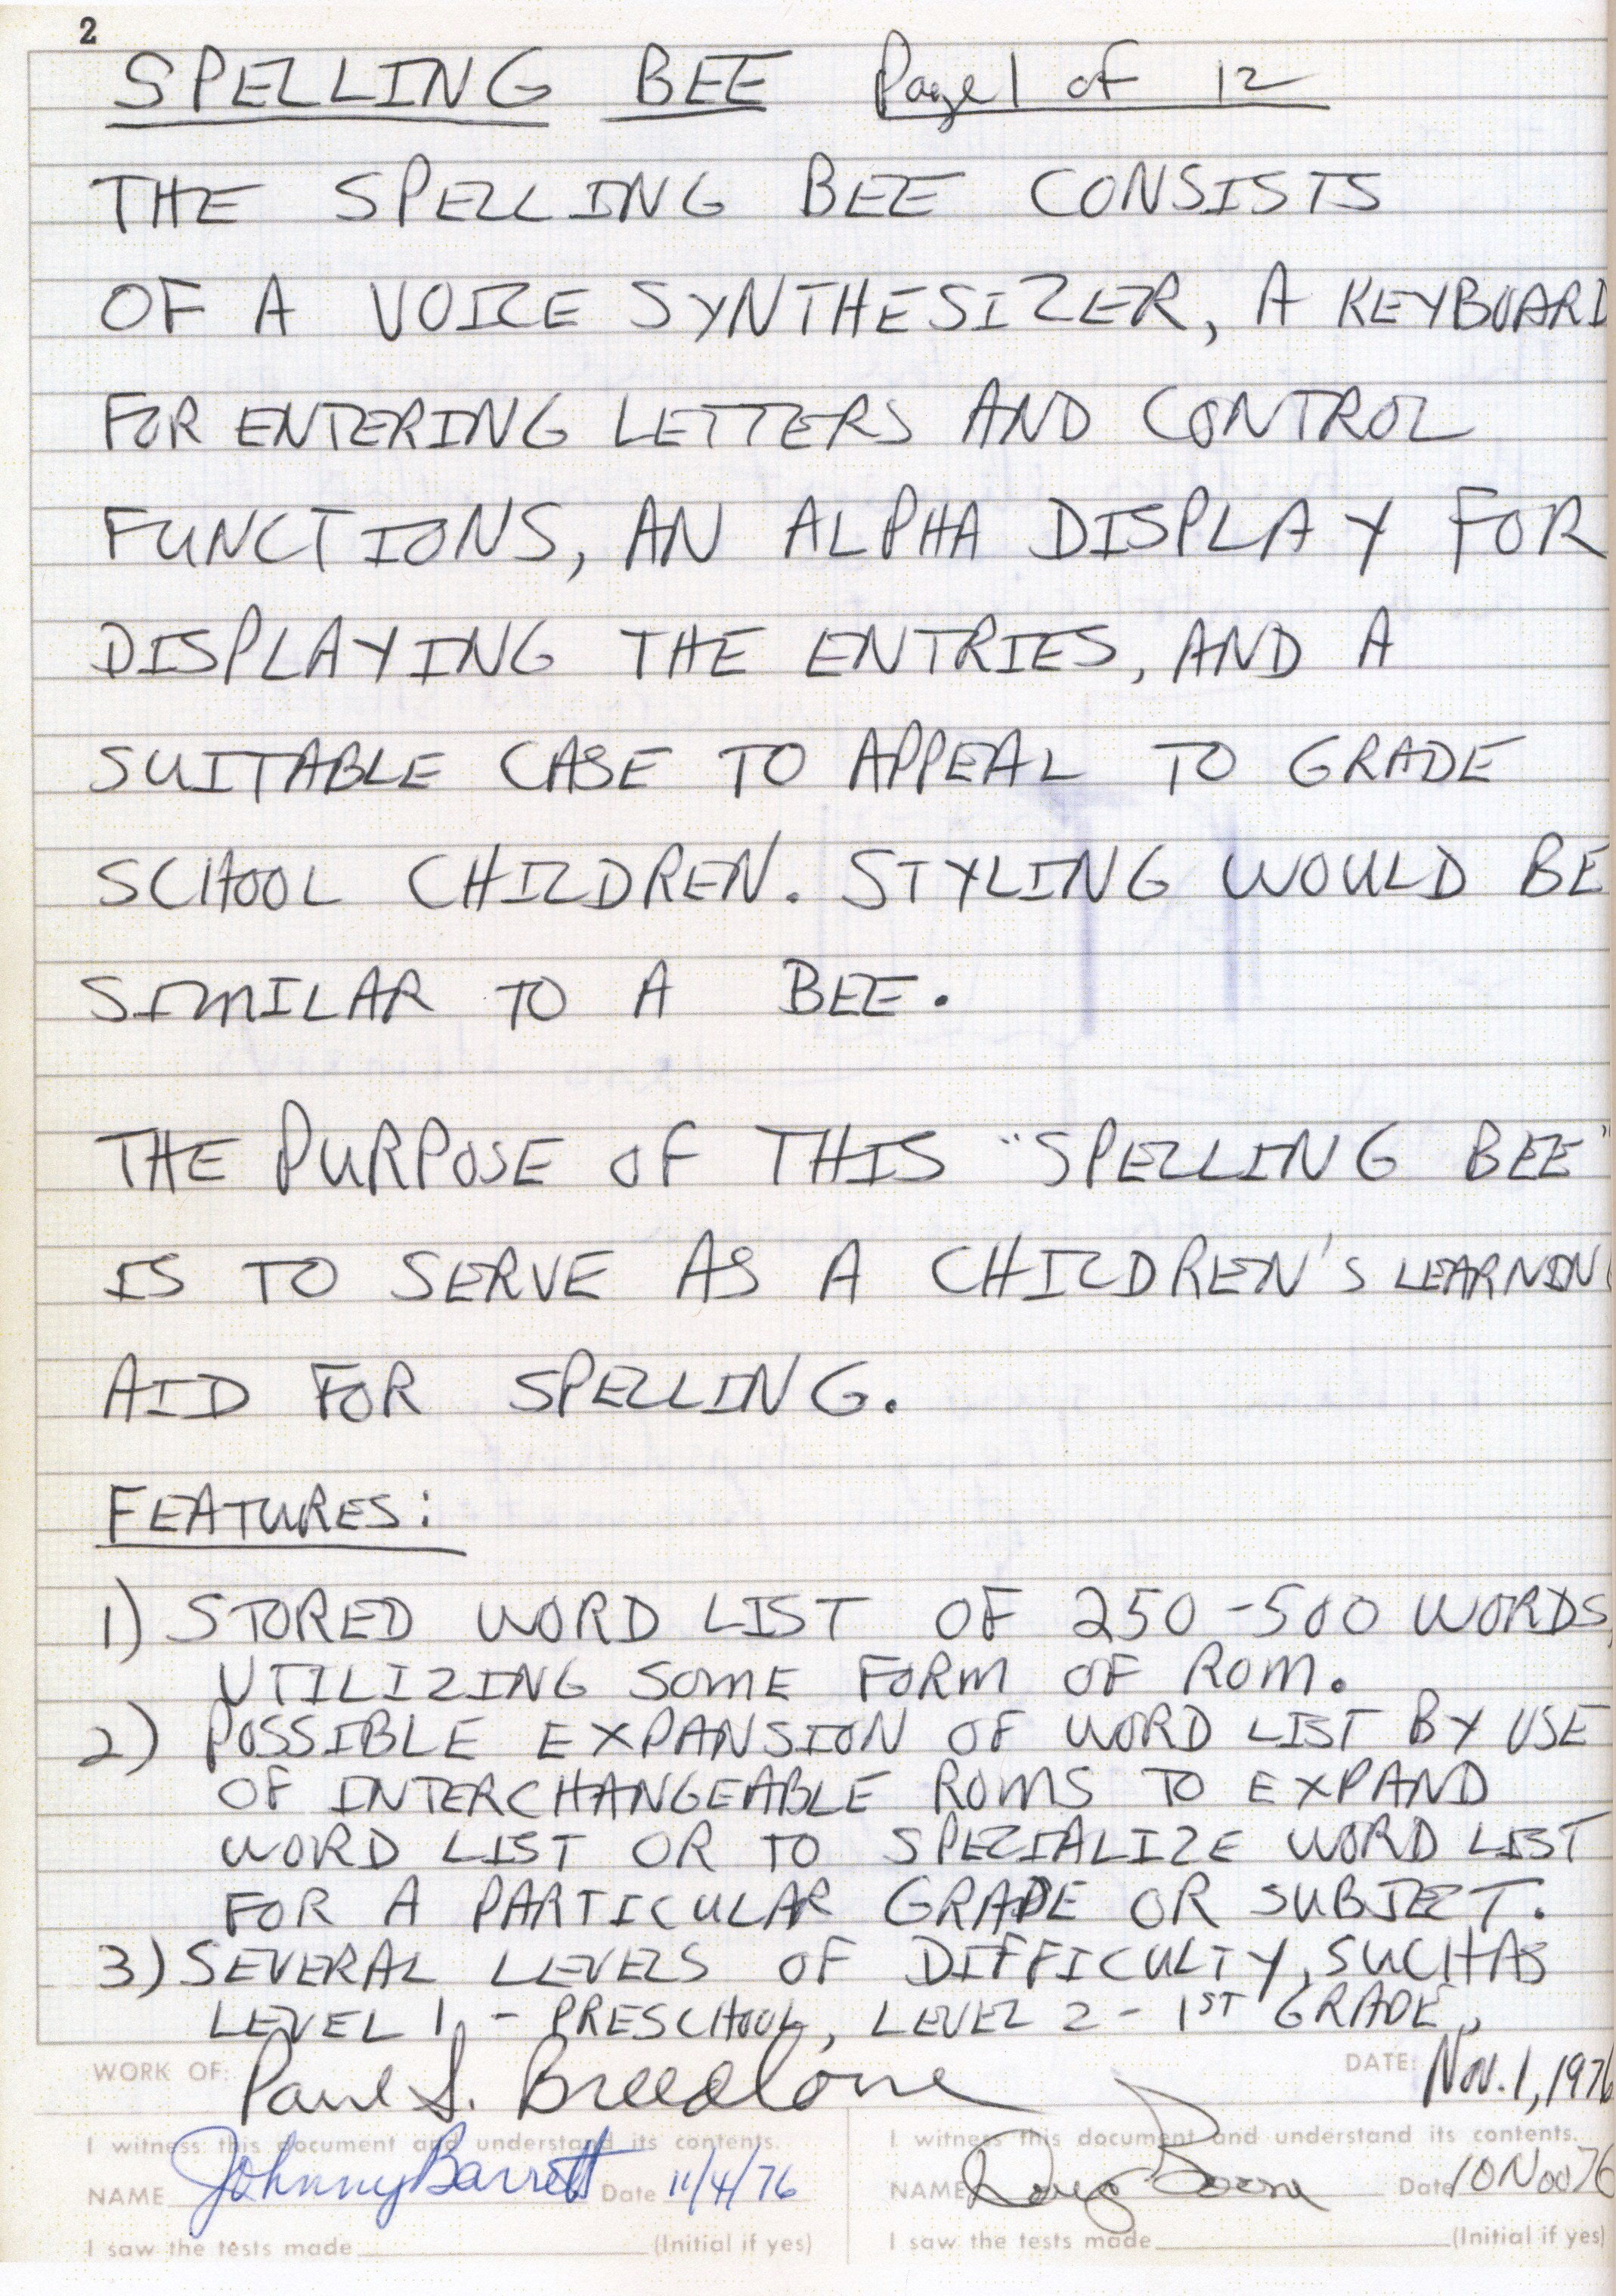 2
SPELLING BEE Page 1 of 12
THE SPELLING BEE CONSISTS
OF A VOICE SYNTHESIZER, A KEYBOARD
FOR ENTERING LETTERS AND CONTROL
FUNCTIONS, AN ALPHA DISPLAY FOR
DISPLAYING THE ENTRIES, AND A
SUITABLE CASE TO APPEAL TO GRADE
SCHOOL CHILDREN. STYLING WOULD BE
SIMILAR TO A BEE.
THE PURPOSE OF THIS "SPELLING BEE"
IS TO SERVE AS A CHILDREN'S LEARNING
AID FOR SPELLING.
FEATURES:
1) STORED WORD LIST OF 250-500 WORDS,
UTILIZING SOME FORM OF ROM.
2) POSSIBLE EXPANSION OF WORD LIST BY USE
OF INTERCHANGEABLE ROMS TO EXPAND
WORD LIST OR TO SPECIALIZE WORD LIST
FOR A PARTICULAR GRADE OR SUBJECT.
3) SEVERAL LEVELS OF DIFFICULTY, SUCH AS
LEVEL 1, - PRESCHOOL, LEVEL 2 - 1ST GRADE,
WORK OF: Paul S. Breedlove DATE: Nov. 1, 1976
I witness this document and understand its contents.
NAME Johnny Barrett Date 11/4/76
I saw the tests made (Initial if yes)
I witness this document and understand its contents.
NAME Doug Boone Date 10 Nov 76
I saw the tests made (Initial if yes)